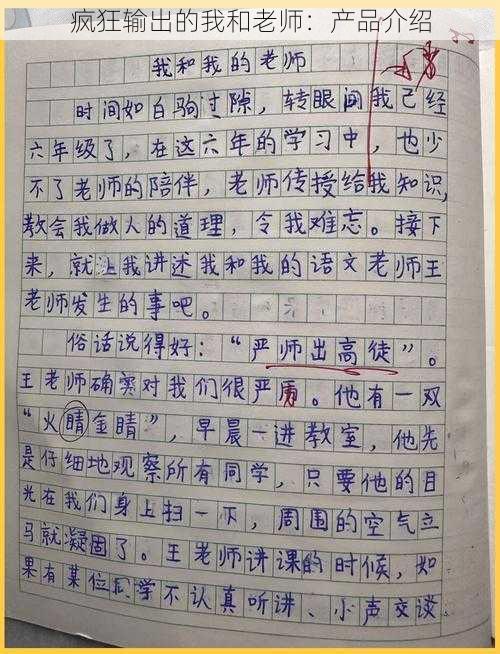 疯狂输出的我和老师：产品介绍
我和我的老师
时间如白驹过隙，转眼间我已经
六年级了，在这六年的学习中，也少
不了老师的陪伴，老师传授给我知识，
教会我做人的道理，令我难忘。接下
来，就让我讲述我和我的语文老师王
老师发生的事吧。
俗话说得好：“严师出高徒”。
王老师确实对我们很严厉。他有一双
“火睛金睛”，早晨一进教室，他先
是仔细地观察所有同学，只要他的目
光在我们身上扫一下，周围的空气立
马就凝固了。王老师讲课的时候，如
果有某位同学不认真听讲、小声交谈